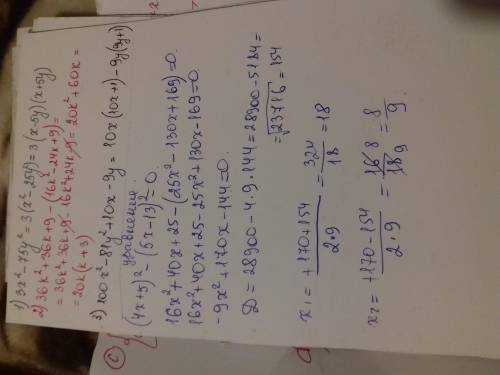 1) 3x² - 75y² = 3(x² - 25y²) = 3(x-5y)(x+5y)
2) 36k² + 36k + 9 - (16k² - 24k + 9) =
= 36k² + 36k + 9 - 16k² + 24k - 9 = 20k² + 60k =
= 20k(k + 3)
3) 100x² - 81y² + 10x - 9y = 10x(10x+1) - 9y(9y+1)
уравнение
(4x+5)² - (5x-13)² = 0.
16x² + 40x + 25 - (25x² - 130x + 169) = 0.
16x² + 40x + 25 - 25x² + 130x - 169 = 0.
-9x² + 170x - 144 = 0.
D = 28900 - 4·9·144 = 28900 - 5184 =
= √23716 = 154
x₁ = +170+154 / 2·9 = 324 / 18 = 18
x₂ = +170-154 / 2·9 = 16 8 / 18 9 = 8 / 9
C